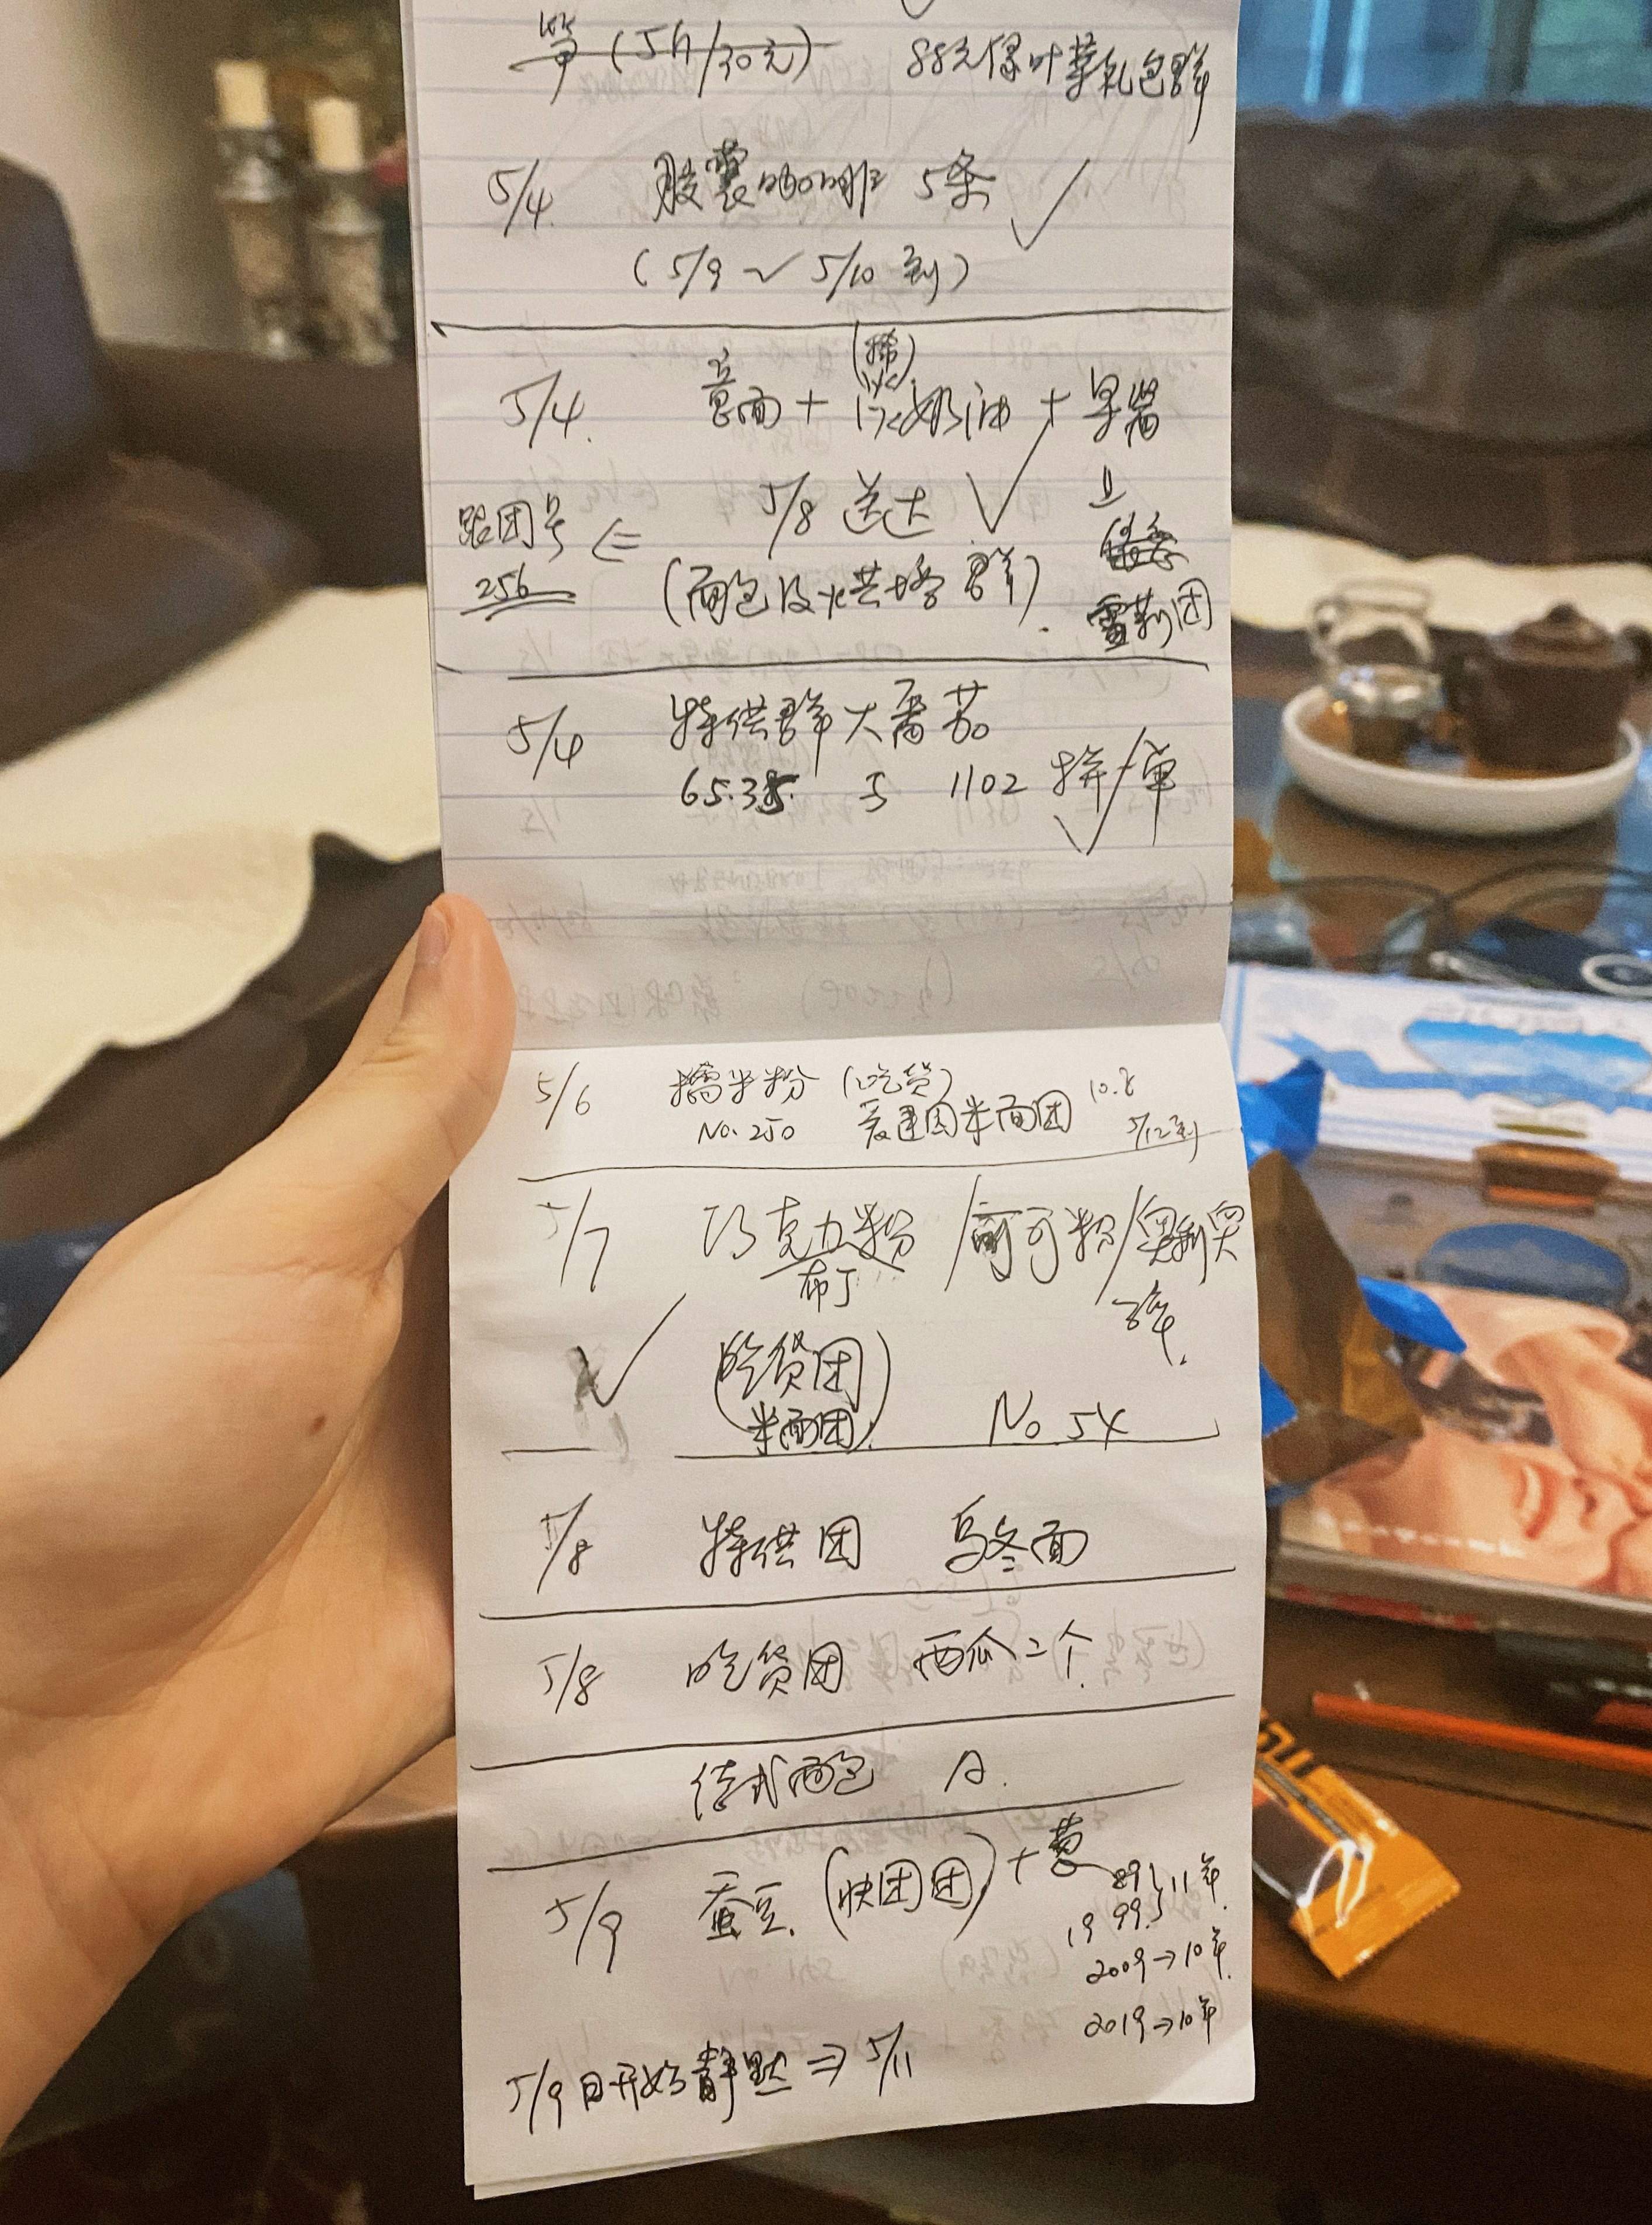 笋 (5斤/30元) 88元绿叶菜礼包群
5/4. 胶囊咖啡 5条 ✓
(5/9 ~ 5/10 到)
(稀)
5/4. 意面 + 淡奶油 + 果酱
5/8 送达 ✓
跟团号 ⇐
256
(面包及烘培群).
雷莉团
5/4 特供群大番茄
65.35 与 1102 拼单 ✓
5/6 糯米粉 (吃货) 10.8
No. 250 爱建园米面团 5/12到
5/7 巧克力粉 /可可粉/奥利奥
布丁 碎.
✓ (吃货团
米面团) No 54
5/8 特供团 乌冬面
5/8 吃货团 西瓜二个
德式面包 A.
5/9 蚕豆. (快团团) + 葱
89 } 11年.
1999.
2009→10年.
2019→10年
5/9日开始静默 ⇒ 5/11